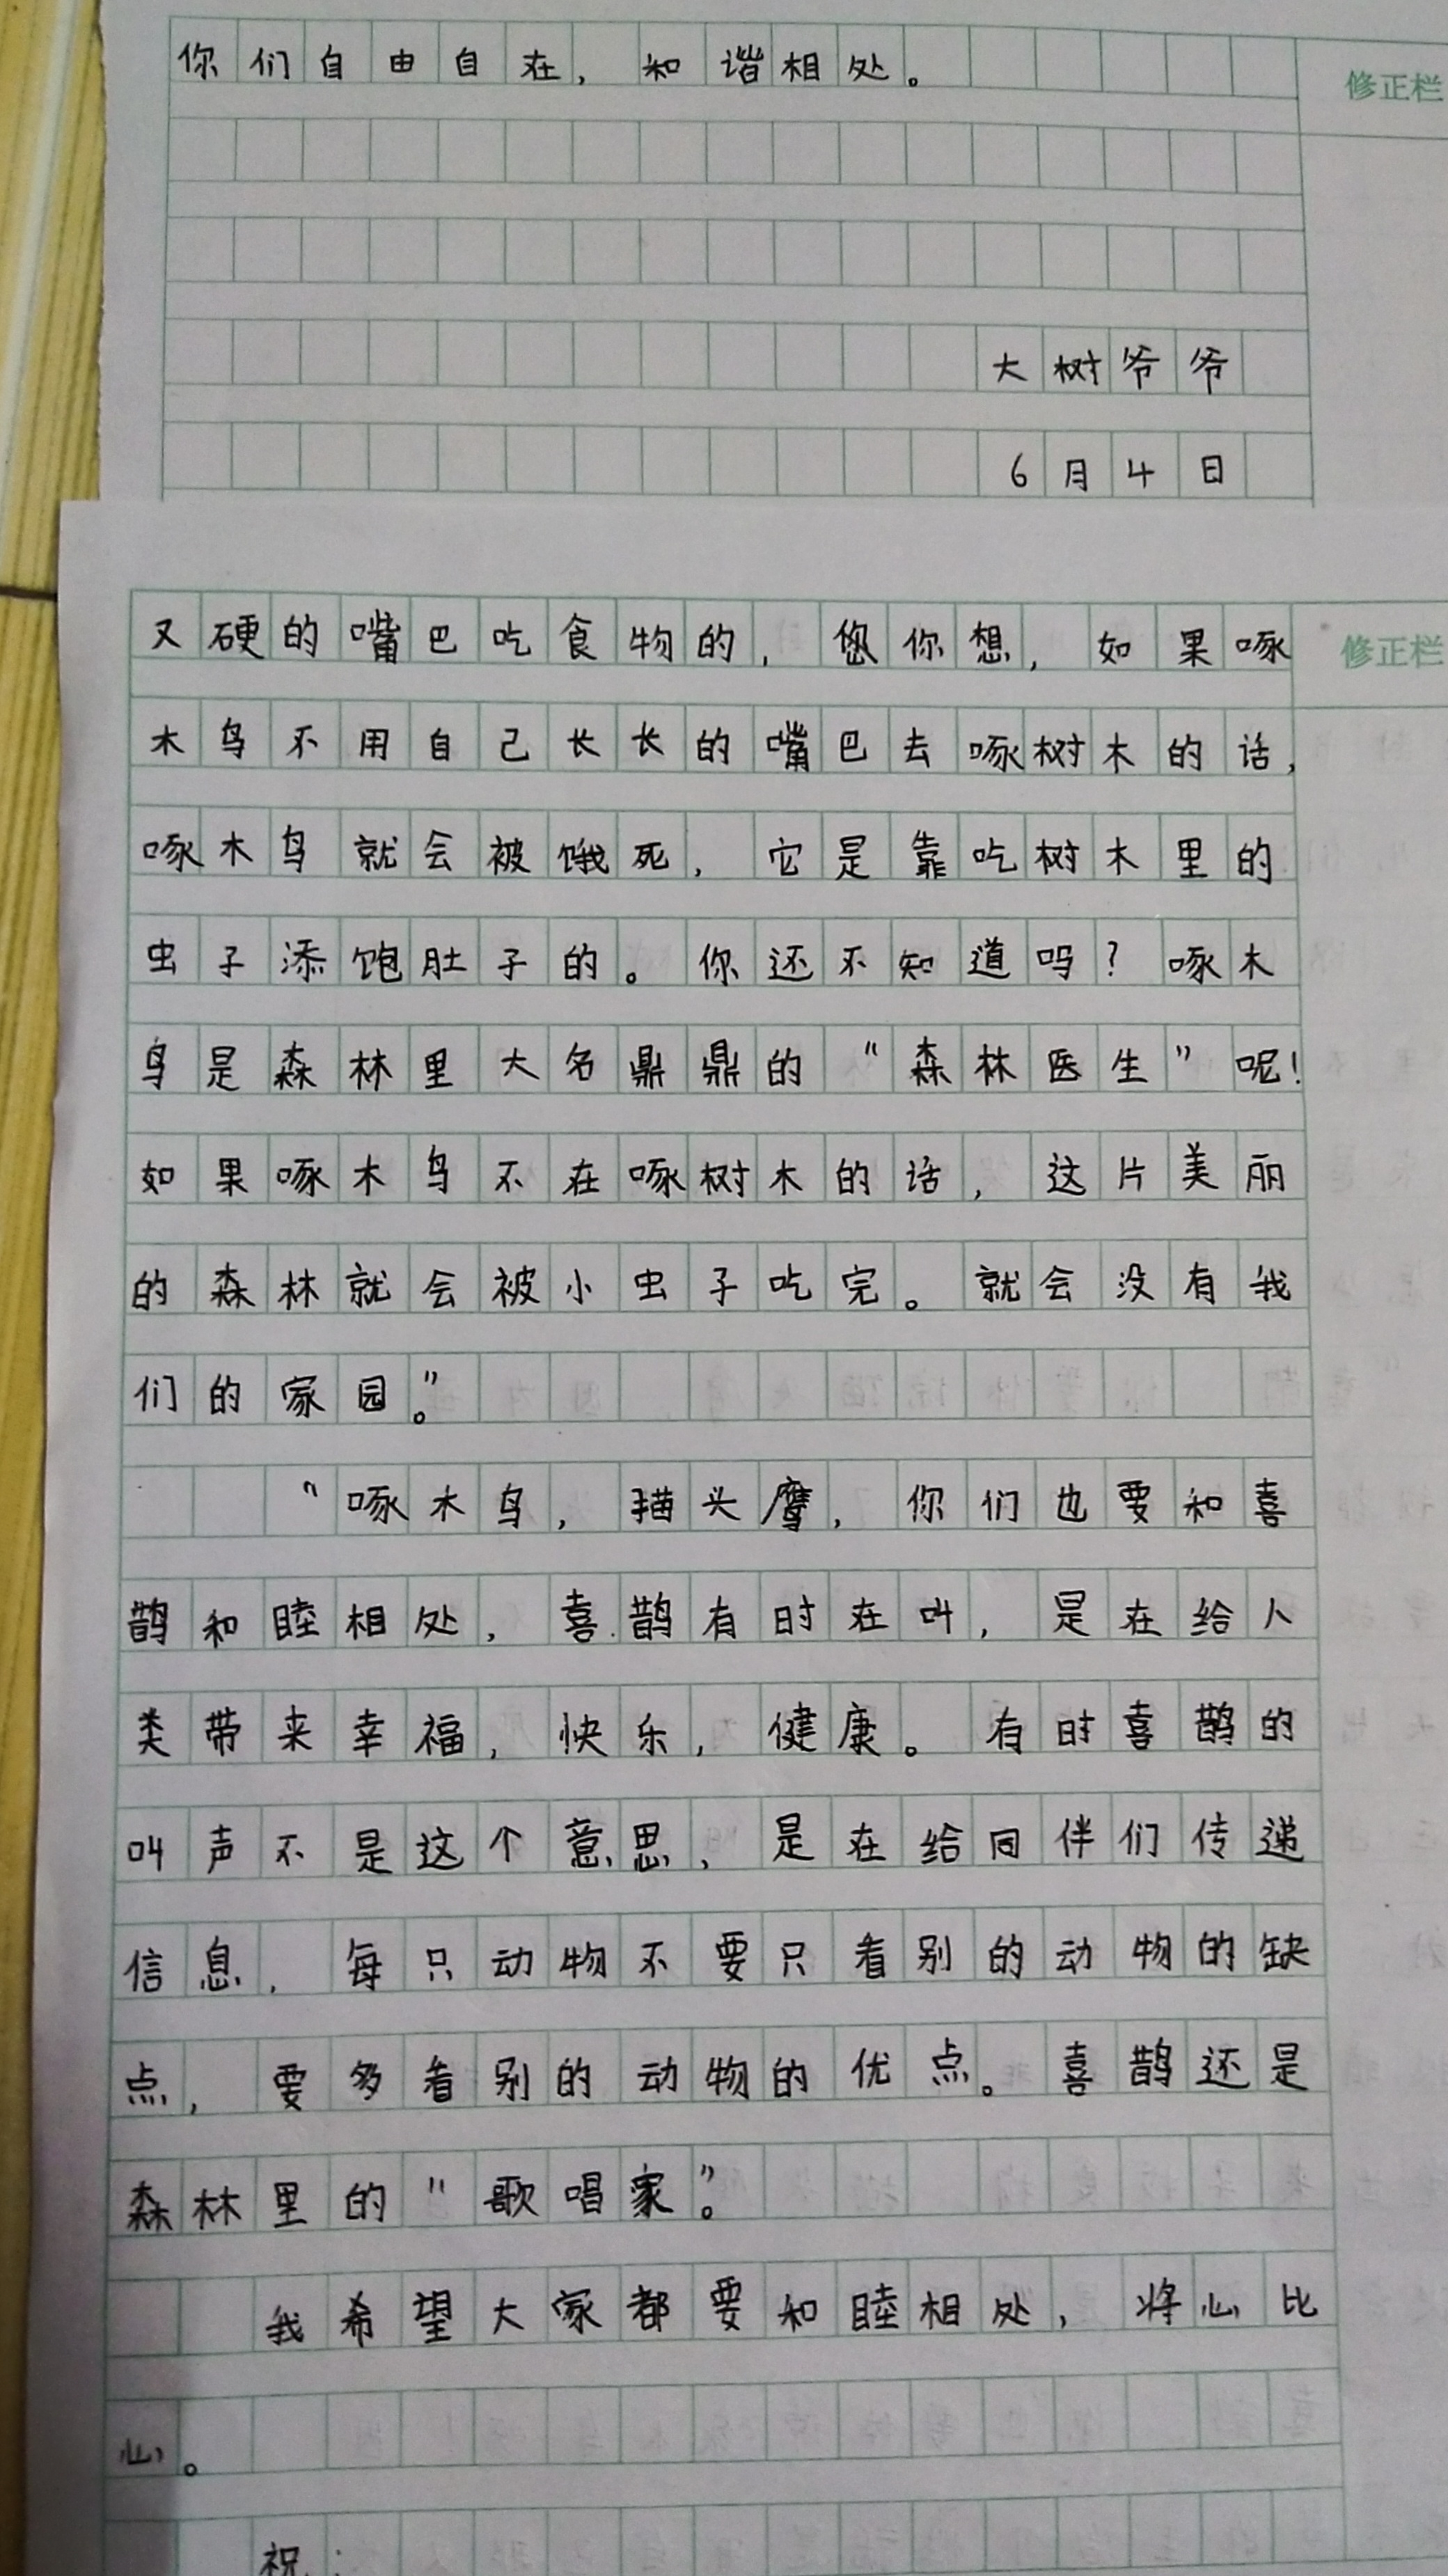 你们自由自在,和谐相处。
修正栏
大树爷爷
6月4日
又硬的嘴巴吃食物的,您你想,如果啄
修正栏
木鸟不用自己长长的嘴巴去啄树木的话,
啄木鸟就会被饿死,它是靠吃树木里的
虫子添饱肚子的。你还不知道吗?啄木
鸟是森林里大名鼎鼎的“森林医生”呢!
如果啄木鸟不在啄树木的话,这片美丽
的森林就会被小虫子吃完。就会没有我
们的家园。”
“啄木鸟,猫头鹰,你们也要和喜
鹊和睦相处,喜鹊有时在叫,是在给人
类带来幸福,快乐,健康。有时喜鹊的
叫声不是这个意思,是在给同伴们传递
信息,每只动物不要只看别的动物的缺
点,要多看别的动物的优点。喜鹊还是
森林里的“歌唱家”。
我希望大家都要和睦相处,将心比
心。
祝: